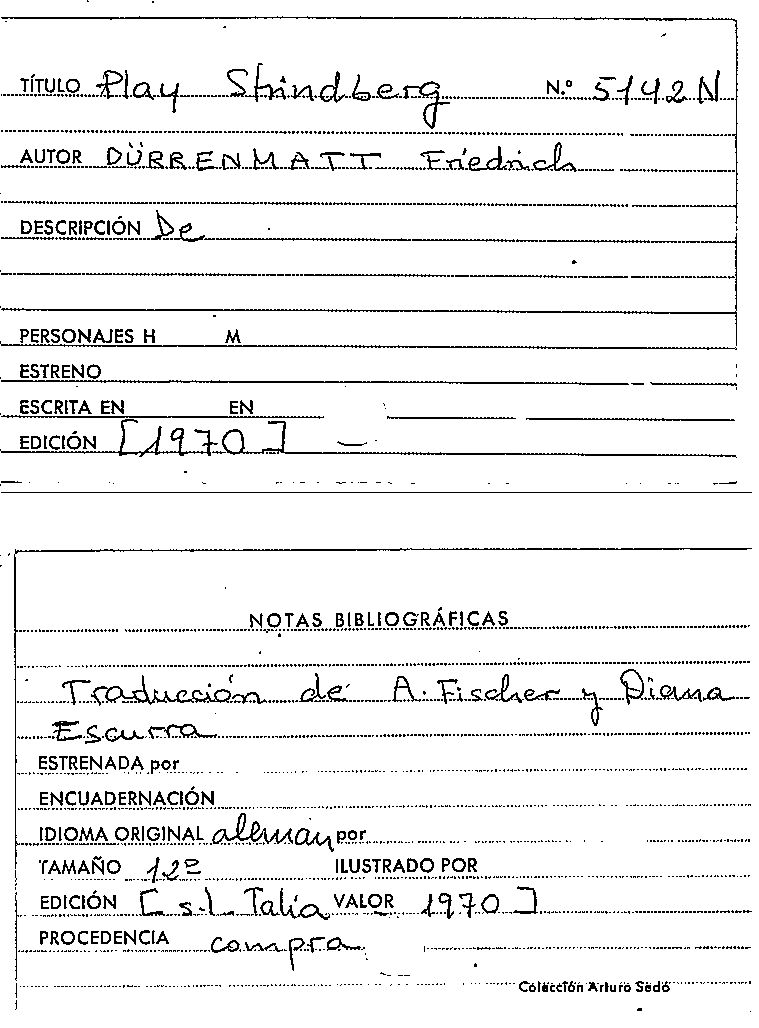 TÍTULO Play Strindberg N.º 5142 N
AUTOR DÜRRENMATT Friedrich
DESCRIPCIÓN De
PERSONAJES H M
ESTRENO
ESCRITA EN EN
EDICIÓN [1970]
NOTAS BIBLIOGRÁFICAS
Traducción de A. Fischer y Diana
Escurra
ESTRENADA por
ENCUADERNACIÓN
IDIOMA ORIGINAL alemán por
TAMAÑO 12º ILUSTRADO POR
EDICIÓN [s.l. Talía VALOR 1970]
PROCEDENCIA compra
Colección Arturo Sedó